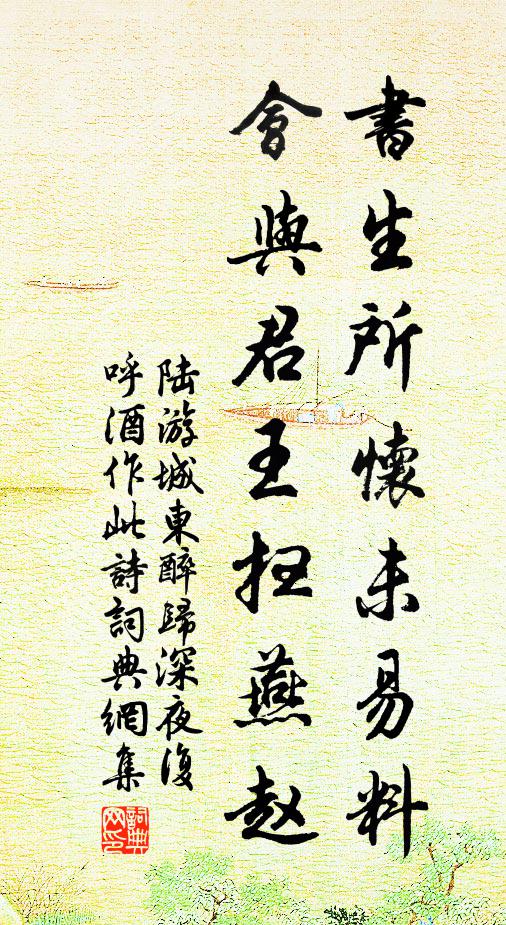 書生所懷未易料
會與君王扫燕赵
陆游城東醉歸深夜復
呼酒作此詩詞典網集
詞典
网印